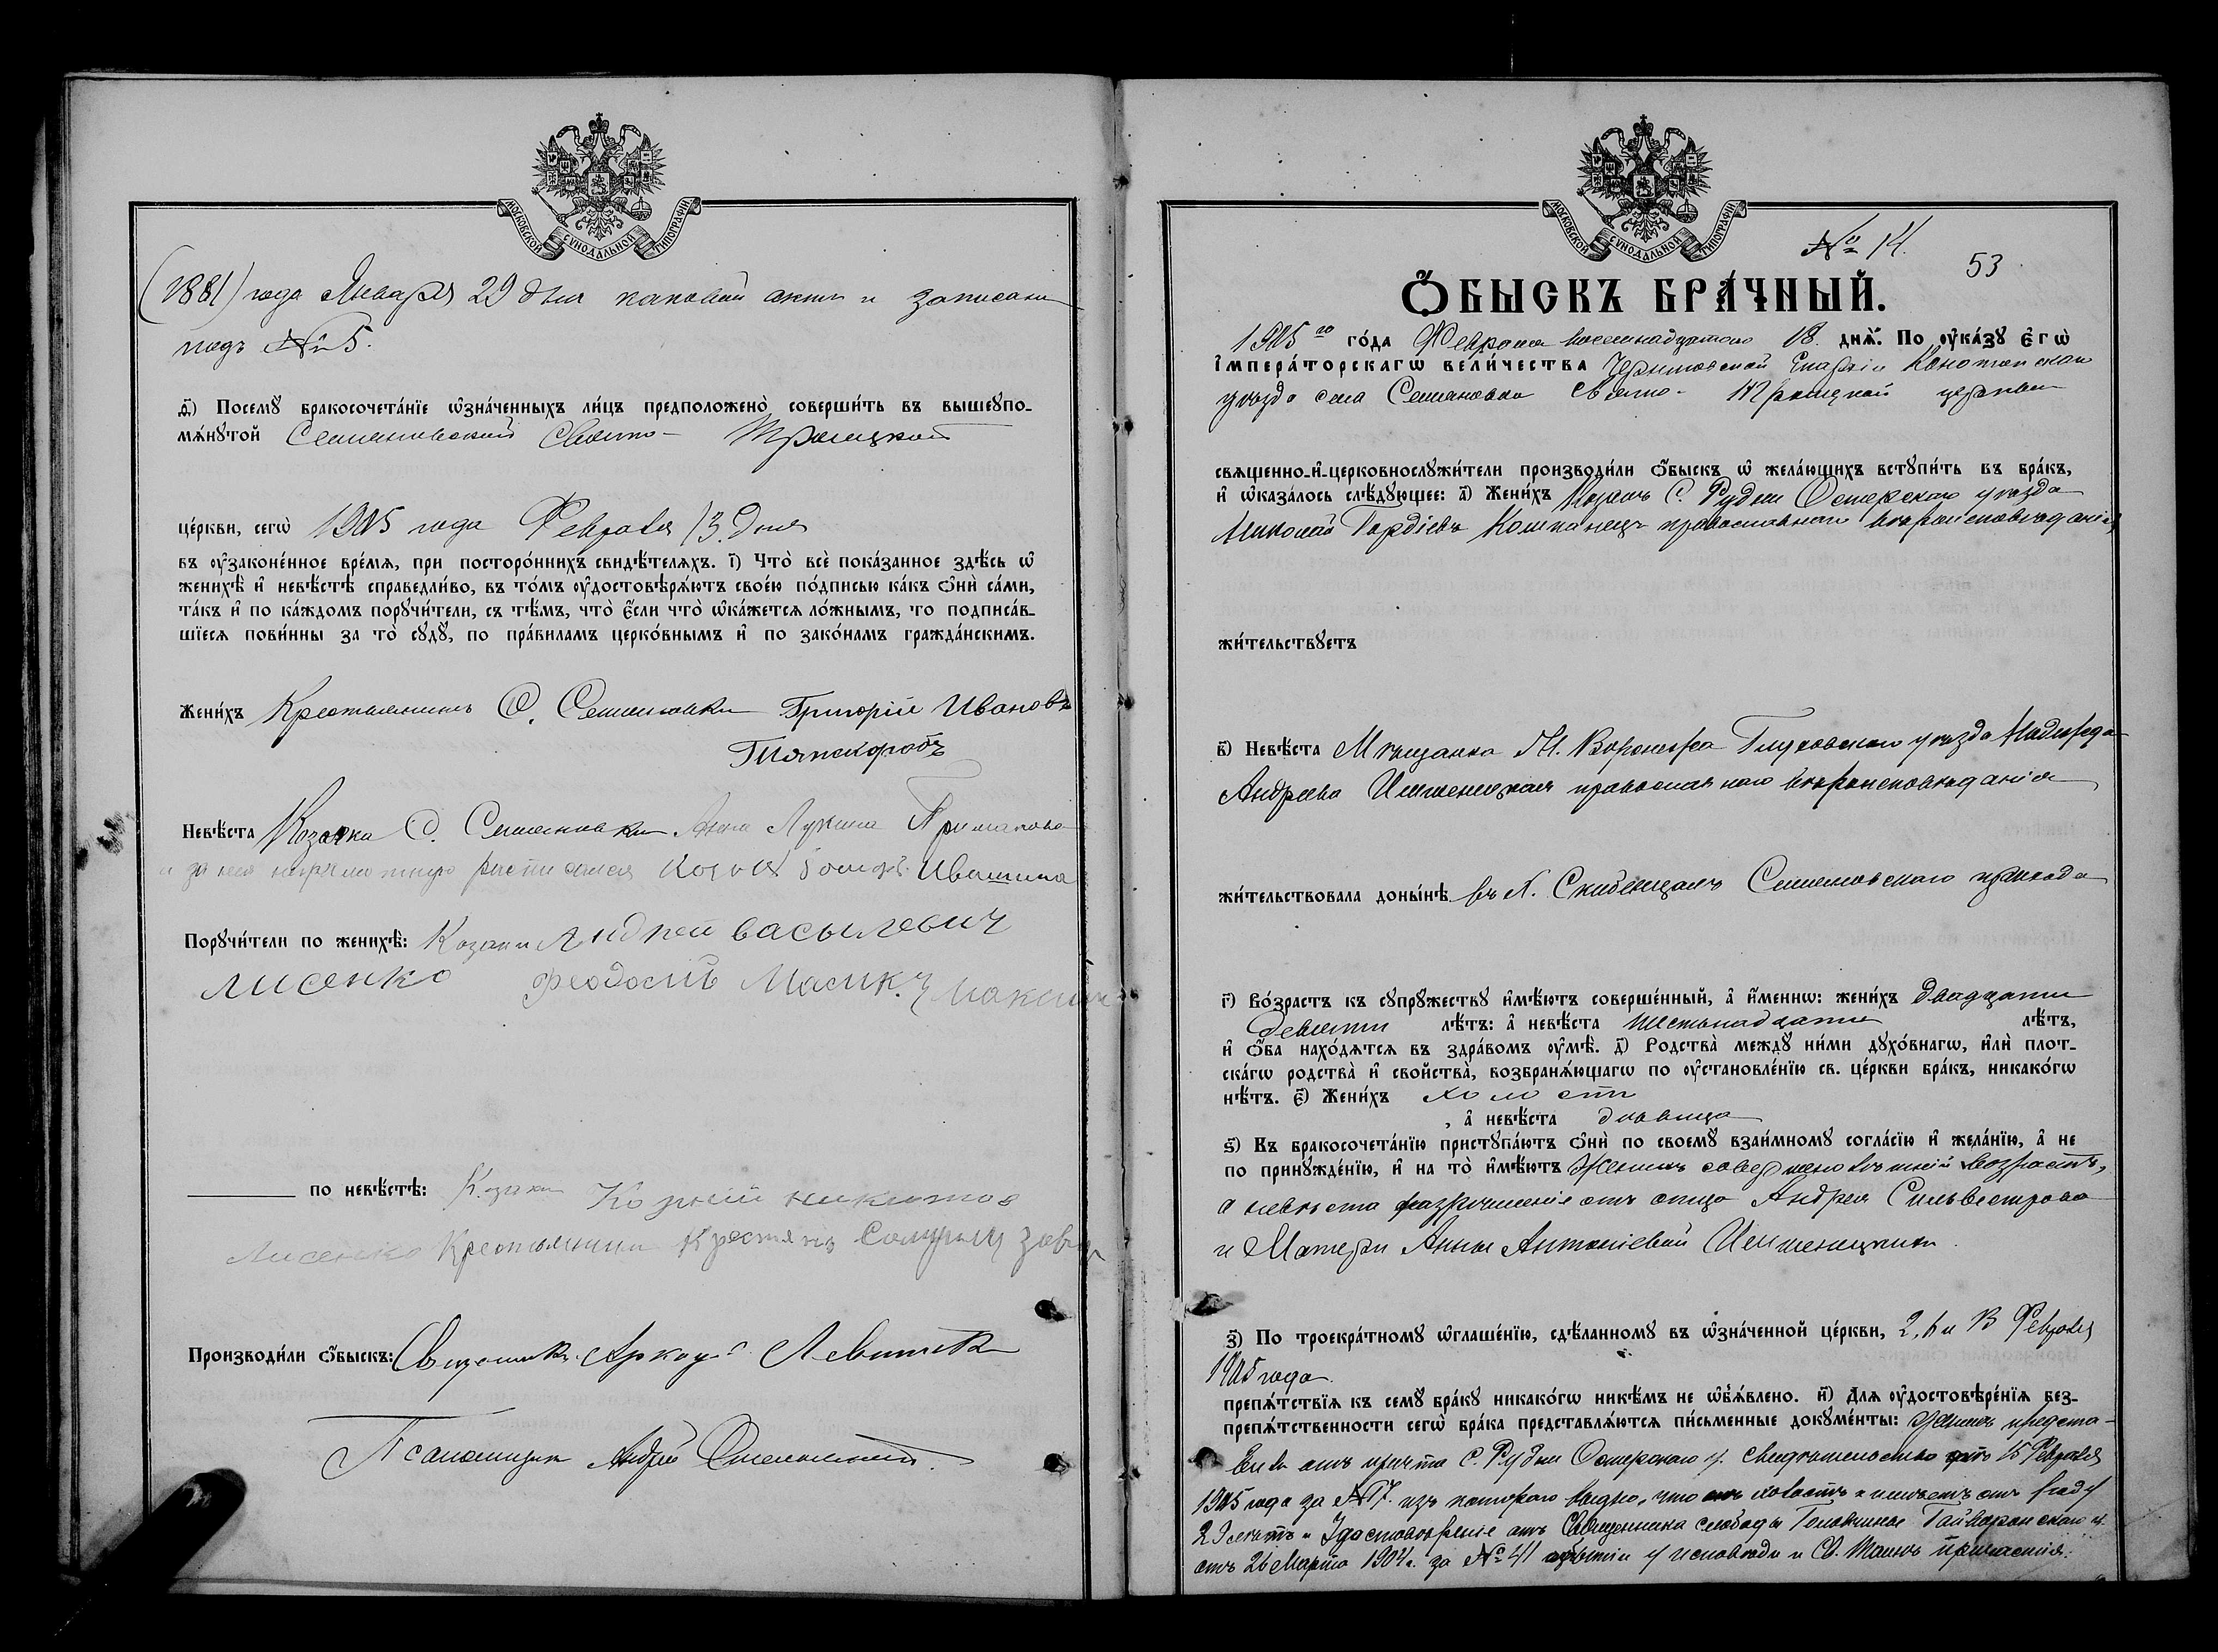 МОСКОВСКОЙ СѴНОДАЛЬНОЙ ТИПОГРАФІИ
(1881) года Января 29 дня каковой актъ и записанъ
подъ № 5.
д҃) Посемꙋ̀ бракосочета́нїе ѡ҆зна́ченныхъ ли́цъ предположено̀ соверши́ть въ вышеꙋпо-
мѧ́нꙋтой Семеновской Свято- Троицкой
це́ркви, сегѡ̀ 1905 года Февраля 13 дня
въ ᲂу҆законе́нное вре́мѧ, при посторо́ннихъ свидѣ́телѧхъ. і҃) Что̀ всѐ пока́занное здѣ́сь ѡ҆
женихѣ̀ и҆ невѣ́стѣ справедли́во, въ то́мъ ᲂу҆достовѣрѧ́ютъ свое́ю по́дписью ка́къ ѻ҆нѝ са́ми,
та́къ и҆ по ка́ждомъ порꙋчи́тели, съ тѣ́мъ, что̀ є҆́сли что̀ ѡ҆ка́жетсѧ ло́жнымъ, то подписа́в-
шїесѧ пови́нны за то̀ сꙋдꙋ̀, по пра́виламъ церко́внымъ и҆ по зако́намъ гражда́нскимъ.
Жени́хъ Крестьянинъ С. Семеновки Григорій Ивановъ
Невѣ́ста Козачка С. Семеновки Анна Лукина
Порꙋчи́тели по женихѣ̀: Козаки Андрей васылевич
лисенко Феодосій Масик. Максим
по невѣ́стѣ: Козаки Корній никитов
Лисенко Крестьянинъ
Производи́ли ѻ҆́быскъ: Священникъ Аркадій Левитскій
Псаломщикъ Андрей
МОСКОВСКОЙ СѴНОДАЛЬНОЙ ТИПОГРАФІИ
№ 14.
53
Ѻ҆́БЫСКЪ БРА́ЧНЫЙ.
1905 го го́да Февраля восемнадцатого 18 днѧ̀. По ᲂу҆ка́зꙋ є҆гѡ̀
і҆мпера́торскагѡ вели́чества Черниговской Епархіи Конотопскаго
уезда села Семеновки Свято- Троицкой церкви
свѧщенно-и҆-церковнослꙋжи́тели производи́ли ѻ҆́быскъ ѡ҆ жела́ющихъ встꙋпи́ть въ бра́къ,
и҆ ѡ҆каза́лось слѣ́дꙋющее: а҃) Жени́хъ Козакъ С. Рудни Остерскаго уезда
Николай Гордіевъ Кошканецъ православнаго вероисповеданія,
жи́тельствꙋетъ
в҃) Невѣ́ста Мѣщанка М. Воронежа Глуховскаго уезда
Андреева православнаго вероисповеданія
жи́тельствовала доны́нѣ въ х. Скибенцахъ Семеновскаго прихода
г҃) Во́зрастъ къ сꙋпрꙋ́жествꙋ и҆мѣ́ютъ соверше́нный, а҆ и҆́меннѡ: жени́хъ двадцати
девяти лѣ́тъ: а҆ невѣ́ста шестьнадцати лѣ́тъ,
и҆ ѻ҆́ба нахо́дѧтсѧ въ здра́вомъ ᲂу҆мѣ̀. д҃) Родства̀ междꙋ̀ ни́ми дꙋхо́внагѡ, и҆лѝ плот-
ска́гѡ родства̀ и҆ свойства̀, возбранѧ́ющагѡ по ᲂу҆становле́нїю св. це́ркви бра́къ, никако́гѡ
нѣ́тъ. є҃) Жени́хъ холостъ
, а҆ невѣ́ста девица
ѕ҃) Къ бракосочета́нїю пристꙋпа́ютъ ѻ҆нѝ по своемꙋ̀ взаи́мномꙋ согла́сїю и҆ жела́нїю, а҆ не
по принꙋжде́нїю, и҆ на то̀ и҆мѣ́ютъ Женихъ совершеннолетній возрастъ,
а невеста разрешеніе отъ отца Андрея Сильвестрова
и Матери Анны Антоніевой
з҃) По троекра́тномꙋ ѡ҆глаше́нїю, сдѣ́ланномꙋ въ ѡ҆зна́ченной це́ркви, 2, 6 и 13 Февраля
1905 года
препѧ́тствїѧ къ семꙋ̀ бра́кꙋ никако́гѡ никѣ́мъ не ѡ҆б̾ѧ́влено. и҃) Длѧ ᲂу҆достовѣре́нїѧ без-
препѧ́тственности сегѡ̀ бра́ка представлѧ́ютсѧ пи́сьменные докꙋме́нты: Женихъ предста-
вилъ отъ причта С. Рудни Остерскаго у. Свидетельство отъ 15 Февраля
1905 года за № 17. изъ котораго видно, что онъ холостъ и имеетъ отъ роду
29 летъ и Удостовереніе отъ Священника слободы
отъ 26 Марта 1904 г. за № 41 о бытіи у исповеди и Св. Таинъ причастія.